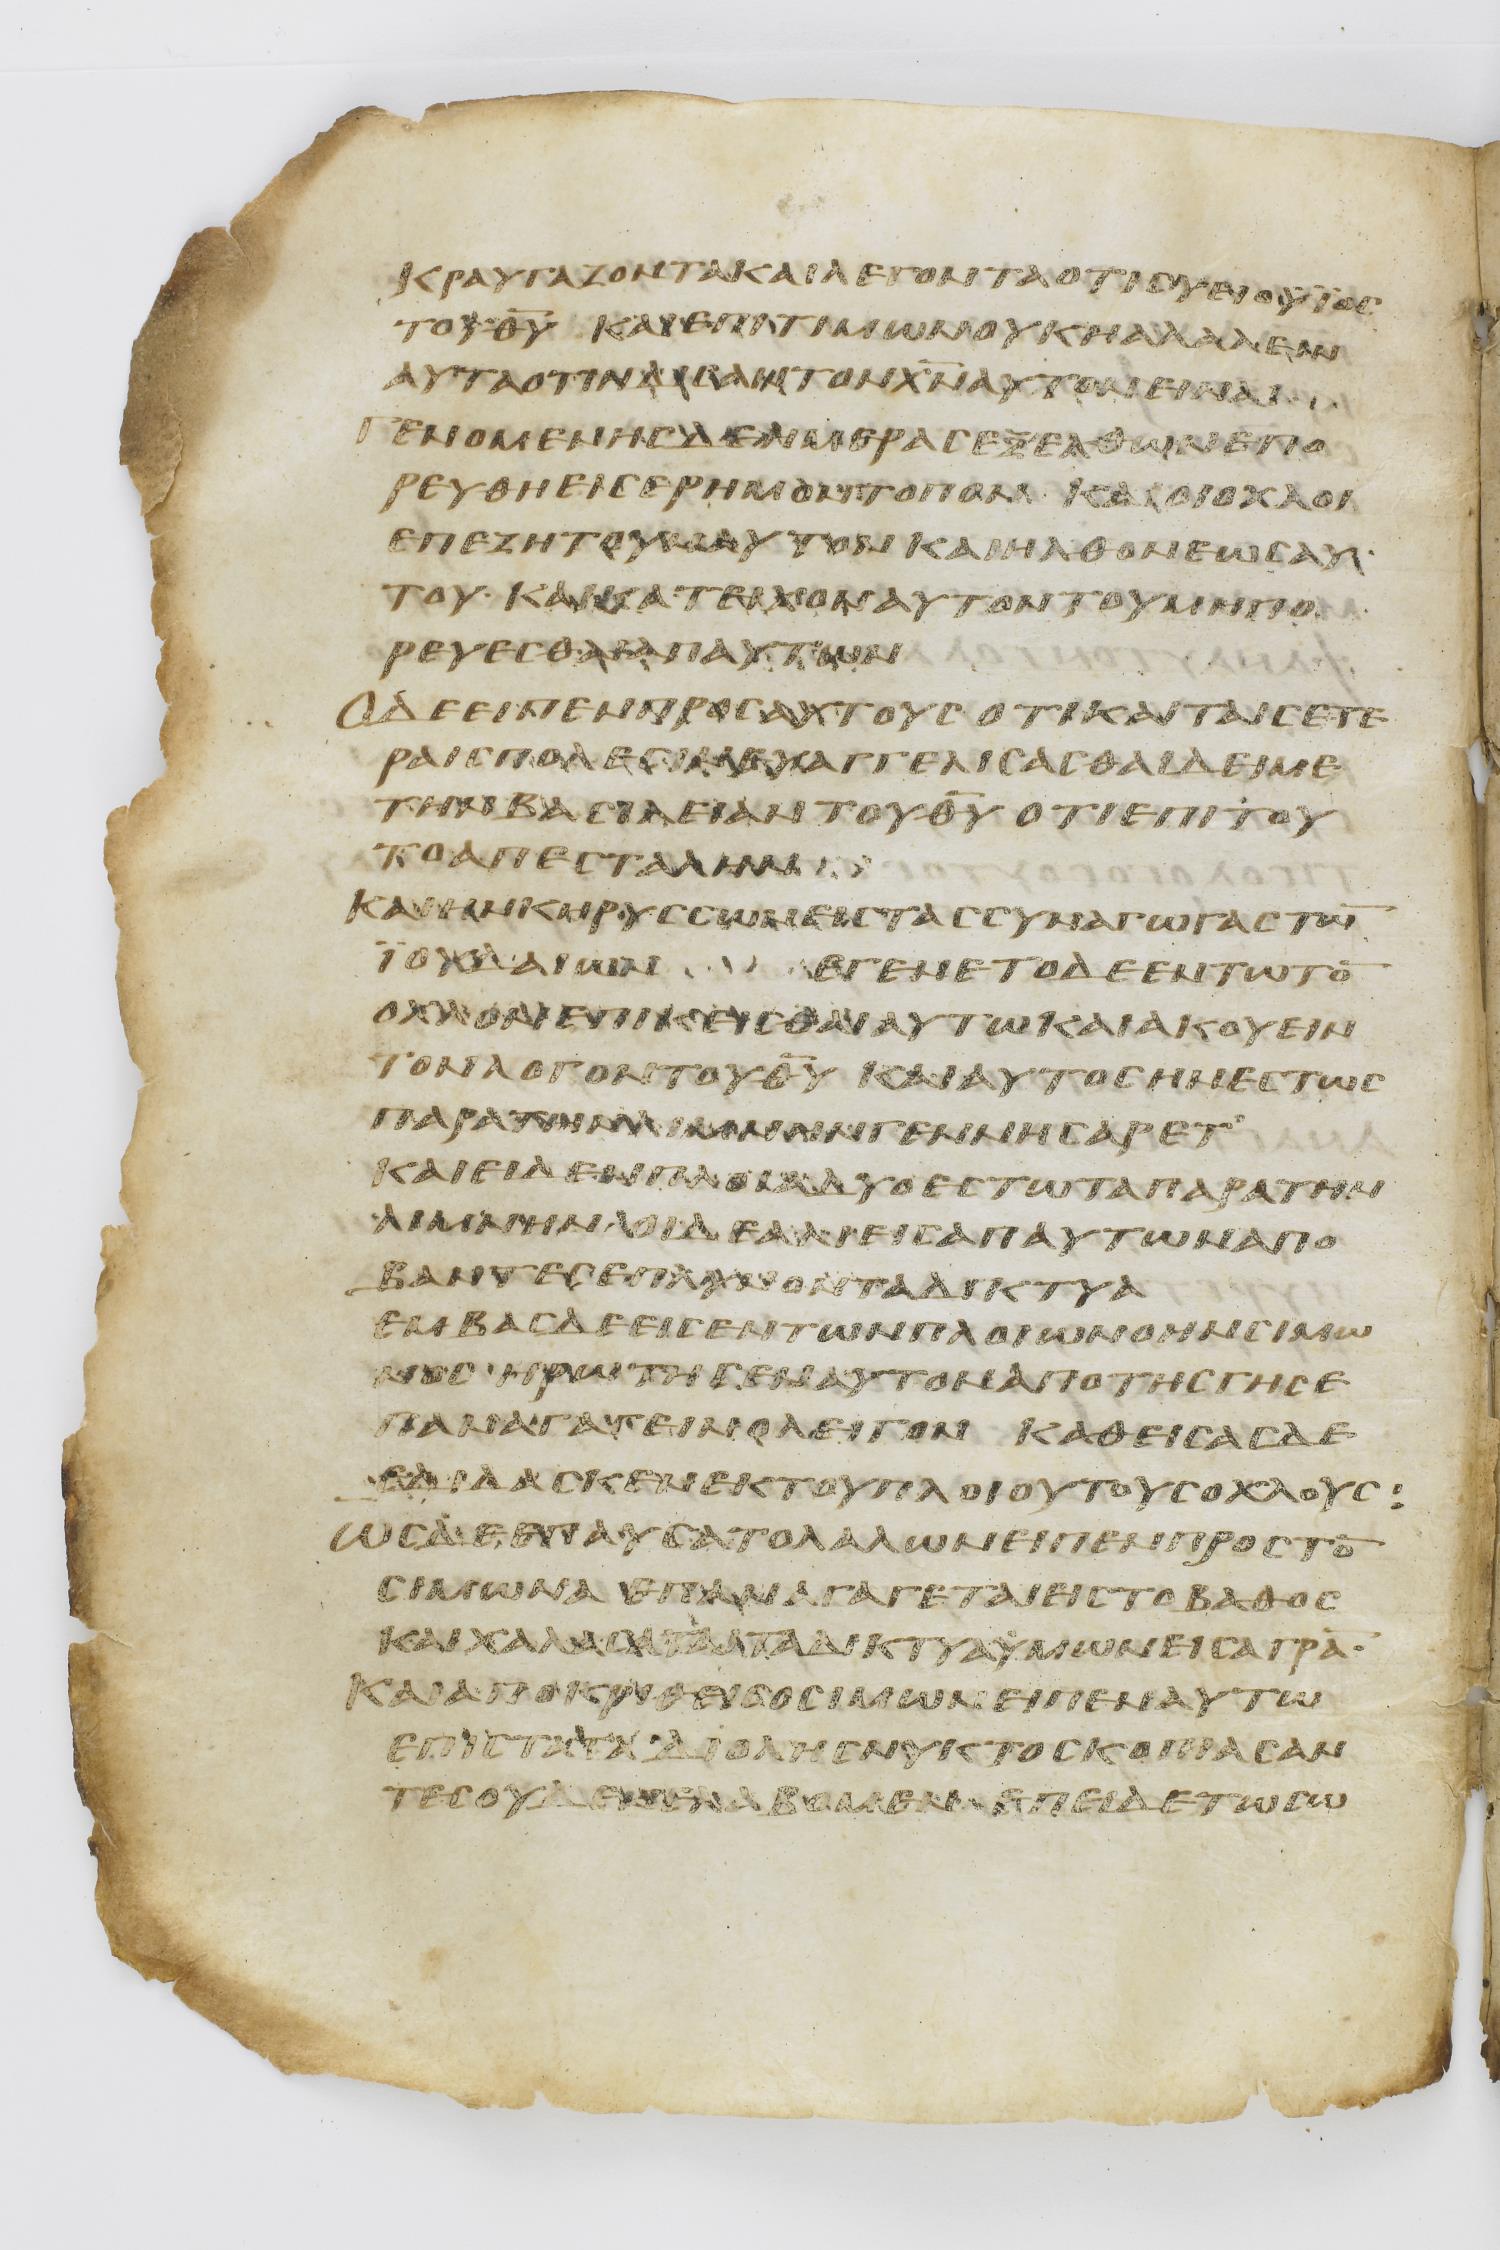 κραυγαζοντα και λεγοντα οτι συ ει ο υιος
του θ̅υ̅ και επιτιμων ουκ ηα λαλειν
αυτα οτι ηδισαν τον χ̅ν̅ αυτον ειναι
γενομενης δε ημερας εξελθων επο
ρευθη εις ερημον τοπον και οι οχλοι
επεζητουν αυτον και ηλθον εως αυ
του και κατειχον αυτον του μη πο
ρευεσθαι απ αυτων
Ο δε ειπεν προς αυτους οτι και ταις ετε
ραις πολεσιν ευαγγελισασθαι δει με
την βασιλειαν του θ̅υ̅ οτι επι του
το απεσταλην
και ην κηρυσσων εις τας συναγωγας τω̅
ιουδαιων εγενετο δε εν τω το̅
οχλον επικεισθαι αυτω και ακουειν
τον λογον του θ̅υ̅ και αυτος ην εστως
παρα την λιμνην γεννησαρετ
και ειδεν πλοια δυο εστωτα παρα την
λιμνην οι δε αλιεις απ αυτων απο
βαντες επλυνον τα δικτυα
εμβας δε εις εν των πλοιων ο ην σιμω
νος ηρωτησεν αυτον απο της γης ε
παναγαγειν ολειγον καθεισας δε
εδιδασκεν εκ του πλοιου τους οχλους:
ως δε επαυσατο λαλων ειπεν προς το̅
σιμωνα επαναγαγεται εις το βαθος
και χαλασατε τα δικτυα ϋμων εις αγρα̅
και αποκριθεις ο σιμων ειπεν αυτω
επιστατα δι ολης νυκτος κοπιασαν
τες ουδεν ελαβομεν επει δε τω σω